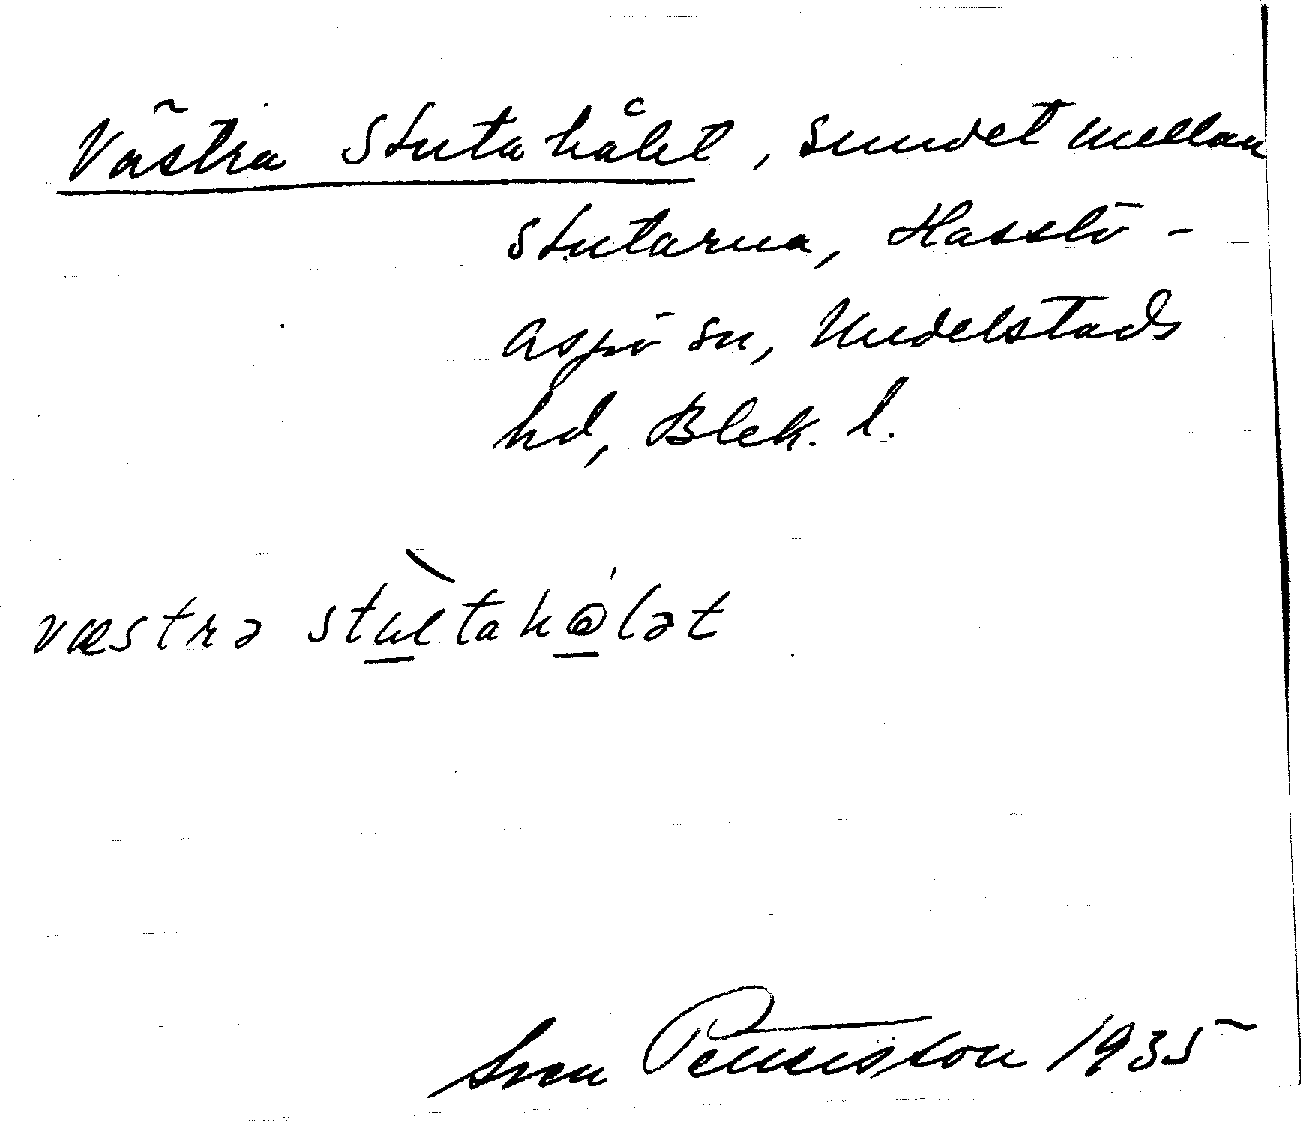 Västra Stutahålet, sundet mellan
Stutarna, Hasslö-
Aspö sn, Medelstads
hd, Blek. l.
væstrə
Sven Pettersson 1935